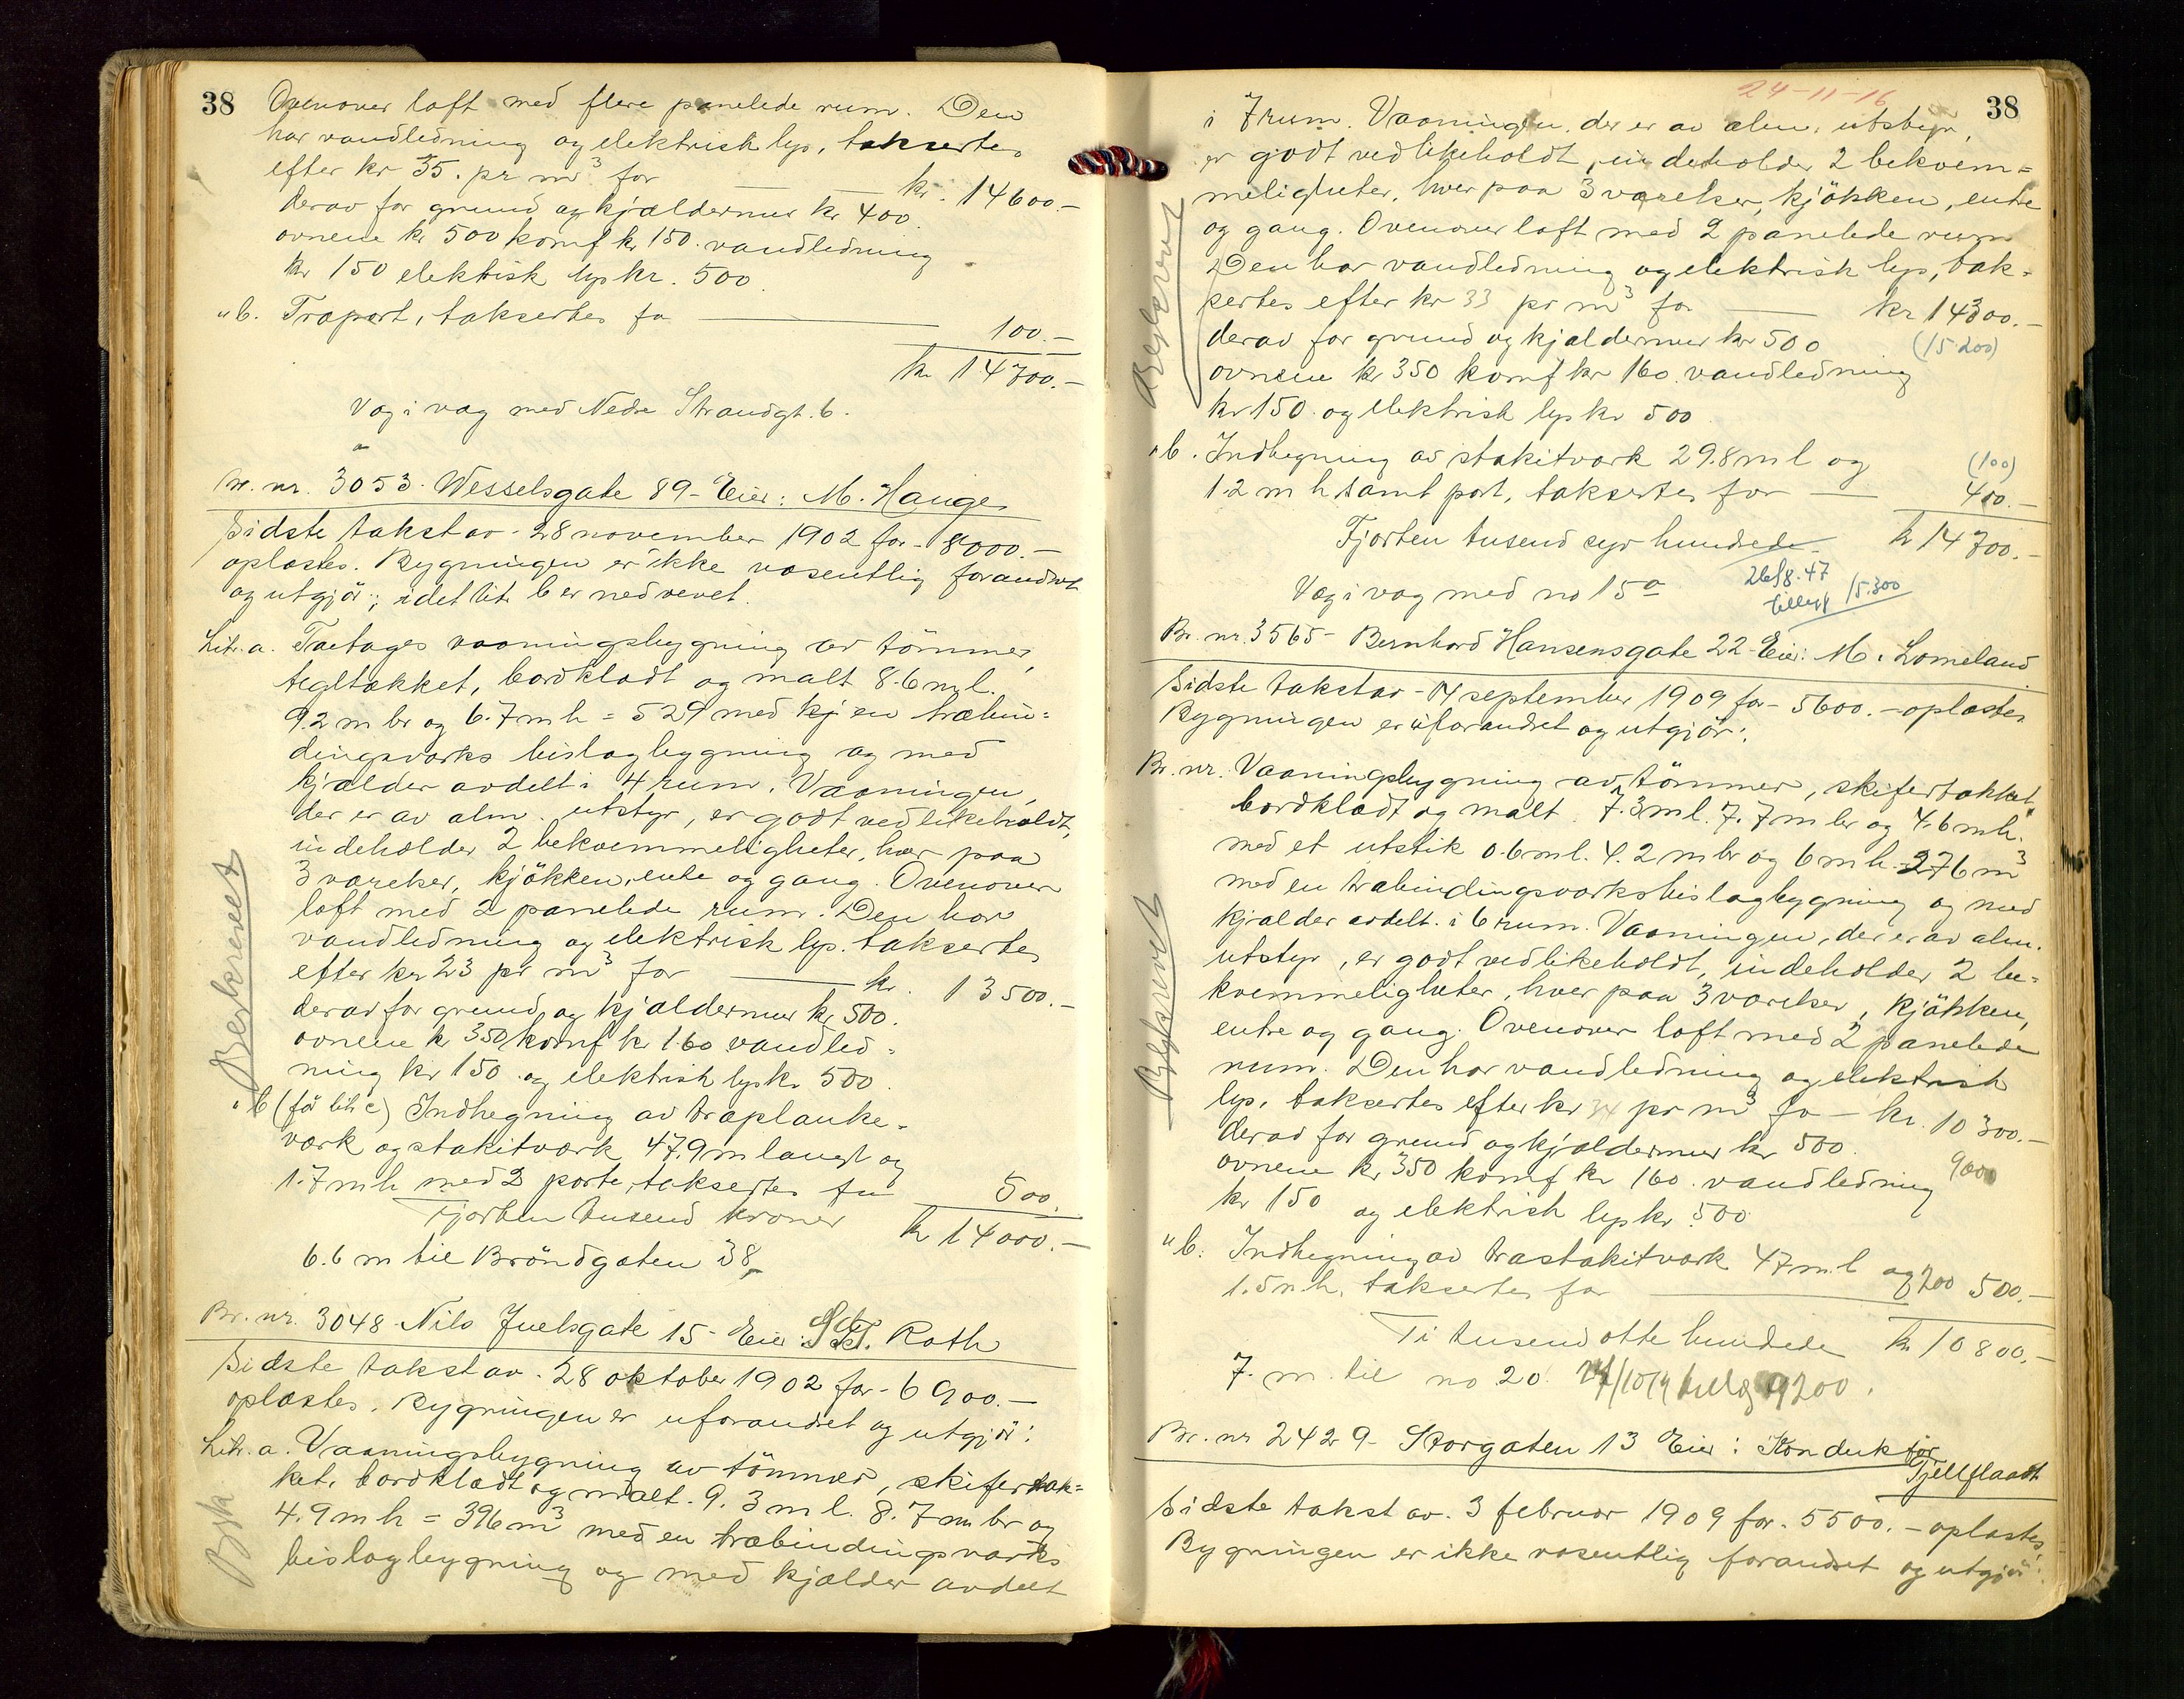 38
Ovenover loft med flere panelede rum. Den
har vandledning og elektrisk lys, taksertes
efter kr 35. pr m³ for — kr. 14600.-
derav for grund og kjældermur kr 400
ovnene kr 500 komf kr 150. vandledning
kr 150 elektrisk lys kr. 500.
"b. Træport, taksertes for — 100.-
kr 14700.-
Væg i væg med Nedre Strandgt. 6.
Br. nr. 3053. Wesselsgate 89 - Eier: M. Hauge
Sidste takst av - 28 november 1902 for - 8000.-
oplæstes. Bygningen er ikke væsentlig forandret
og utgjør:, idet lit. b er nedrevet.
Litr. a. Toetages vaaningsbygning av tömmer,
tegltækket, bordklædt og malt 8.6 m l.
9.2 m br og 6.7 m h = 529 med kj en træbin=
dingsverks bislagbygning og med
kjælder avdelt i 4 rum. Vaaningen,
der er av alm. utstyr, er godt vedlikeholdt,
indeholder 2 bekvemmeligheter, hver paa
3 værelser, kjökken, entre og gang. Ovenover
loft med 2 panelede rum. Den har
vandledning og elektrisk lys. taksertes
efter kr 23 pr m³ for — kr. 13500.-
derav for grund og kjældermur kr 500.
ovnene kr 350 komf kr 160 vandled=
ning kr 150 og elektrisk lys kr 500.
"b (för litr c) Indhegning av træplanke=
værk og stakitværk 47.9 m langt og
1.7 m h med 2 porte, taksertes for 500.
Fjorten tusend kroner kr 14000.-
6.6 m til Bröndgaten 38
Beskrevet
Br. nr. 3048 - Nils Juelsgate 15 - Eier: Roth
Sidste takst av. 28 oktober 1902 for - 6900.-
oplæstes. Bygningen er uforandret og utgjör:
Litr. a. Vaaningsbygning av tömmer, skifertæk=
ket, bordklædt og malt. 9.3 m l. 8.7 m br og
4.9 m h = 396 m³ med en træbindingsværks
bislagbygning og med kjælder avdelt
Bsk
24-11-16
38
i 7 rum. Vaaningen, der er av alm. utstyr,
er godt vedlikeholdt, indeholder 2 bekvem=
meligheter, hver paa 3 værelser, kjökken, entre
og gang. Ovenover loft med 2 panelede rum
Den har vandledning og elektrisk lys, tak=
sertes efter kr 33 pr m³ for — kr 14300.-
derav for grund og kjældermur kr 500 (15200)
ovnene kr 350 komf kr 160. vandledning
kr 150 og elektrisk lys kr 500
Beskrevet
"b. Indhegning av stakitværk 29.8 m l og (100)
1.2 m h samt port, taksertes for — 400.-
Fjorten tusend syv hundrede. kr 14700.-
Væg i væg med no 15a
26/8.47
tillegg 15.300
Br. nr. 3565 - Bernhard Hansensgate 22 - Eier: M. Lomeland
Sidste takst av - 14 september 1909 for - 5600.- oplæstes
Bygningen er uforandret og utgjör:
Br. nr. Vaaningsbygning av tömmer, skifertækket,
bordklædt og malt. 7.3 m l. 7.7 m br og 4.6 m h.
med et utstik 0.6 m l. 4.2 m br og 6 m h = 276 m³
med en træbindingsværksbislagbygning og med
kjælder avdelt i 6 rum. Vaaningen, der er av alm.
utstyr, er godt vedlikeholdt, indeholder 2 be=
kvemmeligheter, hver paa 3 værelser, kjökken,
entre og gang. Ovenover loft med 2 panelede
rum. Den har vandledning og elektrisk
lys, taksertes efter kr 34 pr m³ for — kr. 10300.-
derav for grund og kjældermur kr 500.
ovnene kr 350 komf kr 160. vandledning 9000
kr 150 og elektrisk lys kr 500
Beskrevet
"b. Indhegning av træstakitværk 47 m l og
1.5 m h, taksertes for — 200 500.-
Ti tusend otte hundrede kr 10800.-
7. m. til no 20. 9200.
Br. nr 2429 - Storgaten 13 Eier: Konduktör
Fjellflaadt
Sidste takst av. 3 februar 1909 for. 5500.- oplæstes,
Bygningen er ikke væsentlig forandret og utgjör: